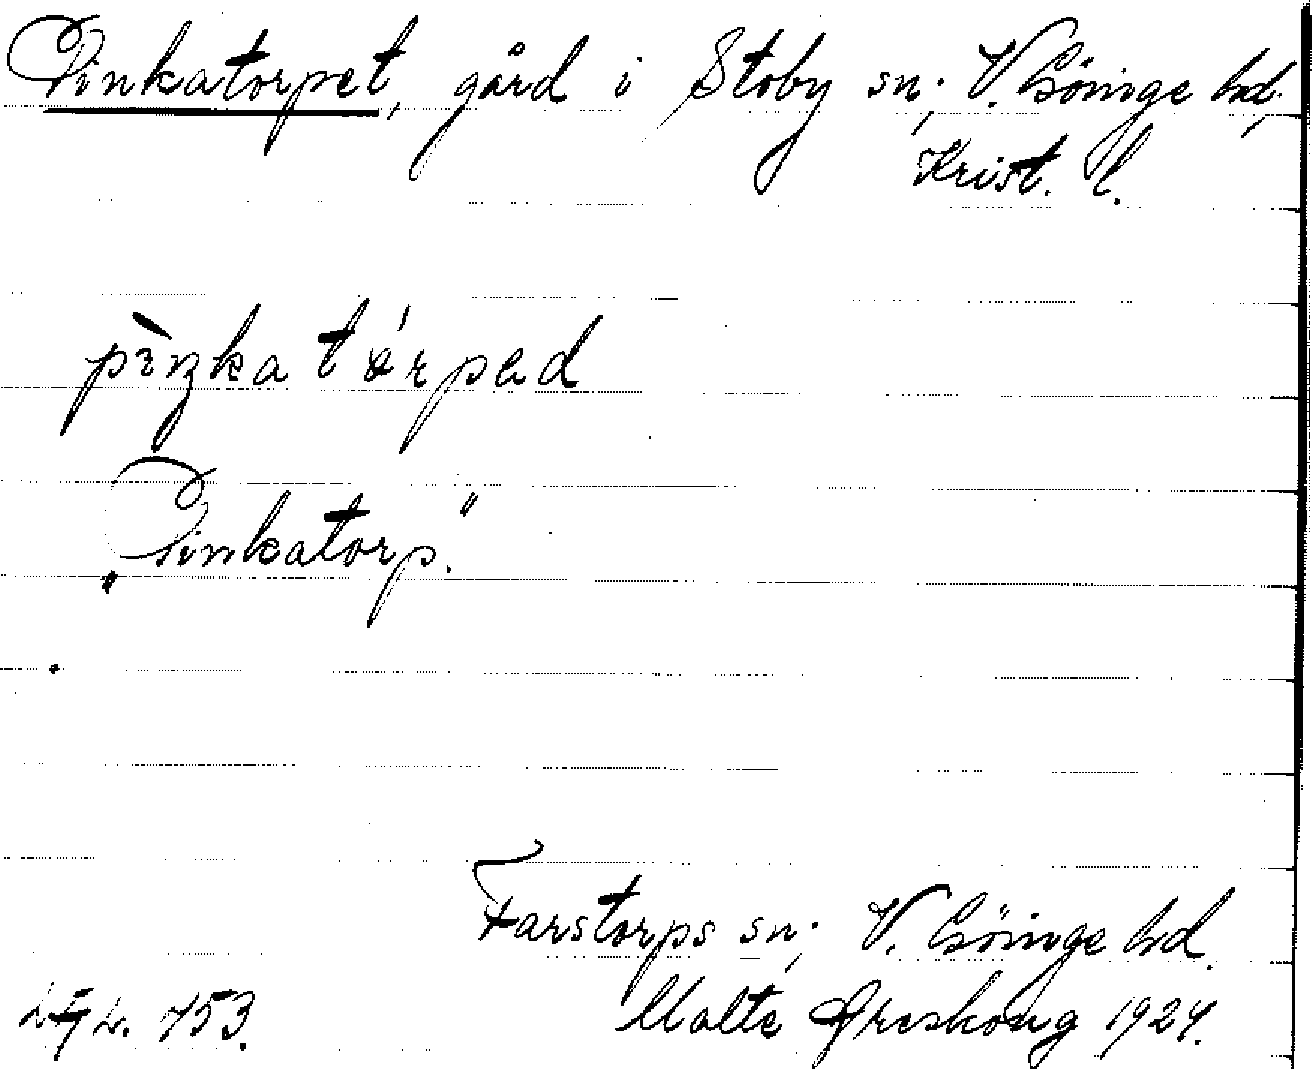 Pinkatorpet, gård i Stoby sn; V. Göinge hd,
Krist. l.
pìŋka tórpəd
„Pinkatorp."
Farstorps sn; V. Göinge hd.
Malte 1924.
753.